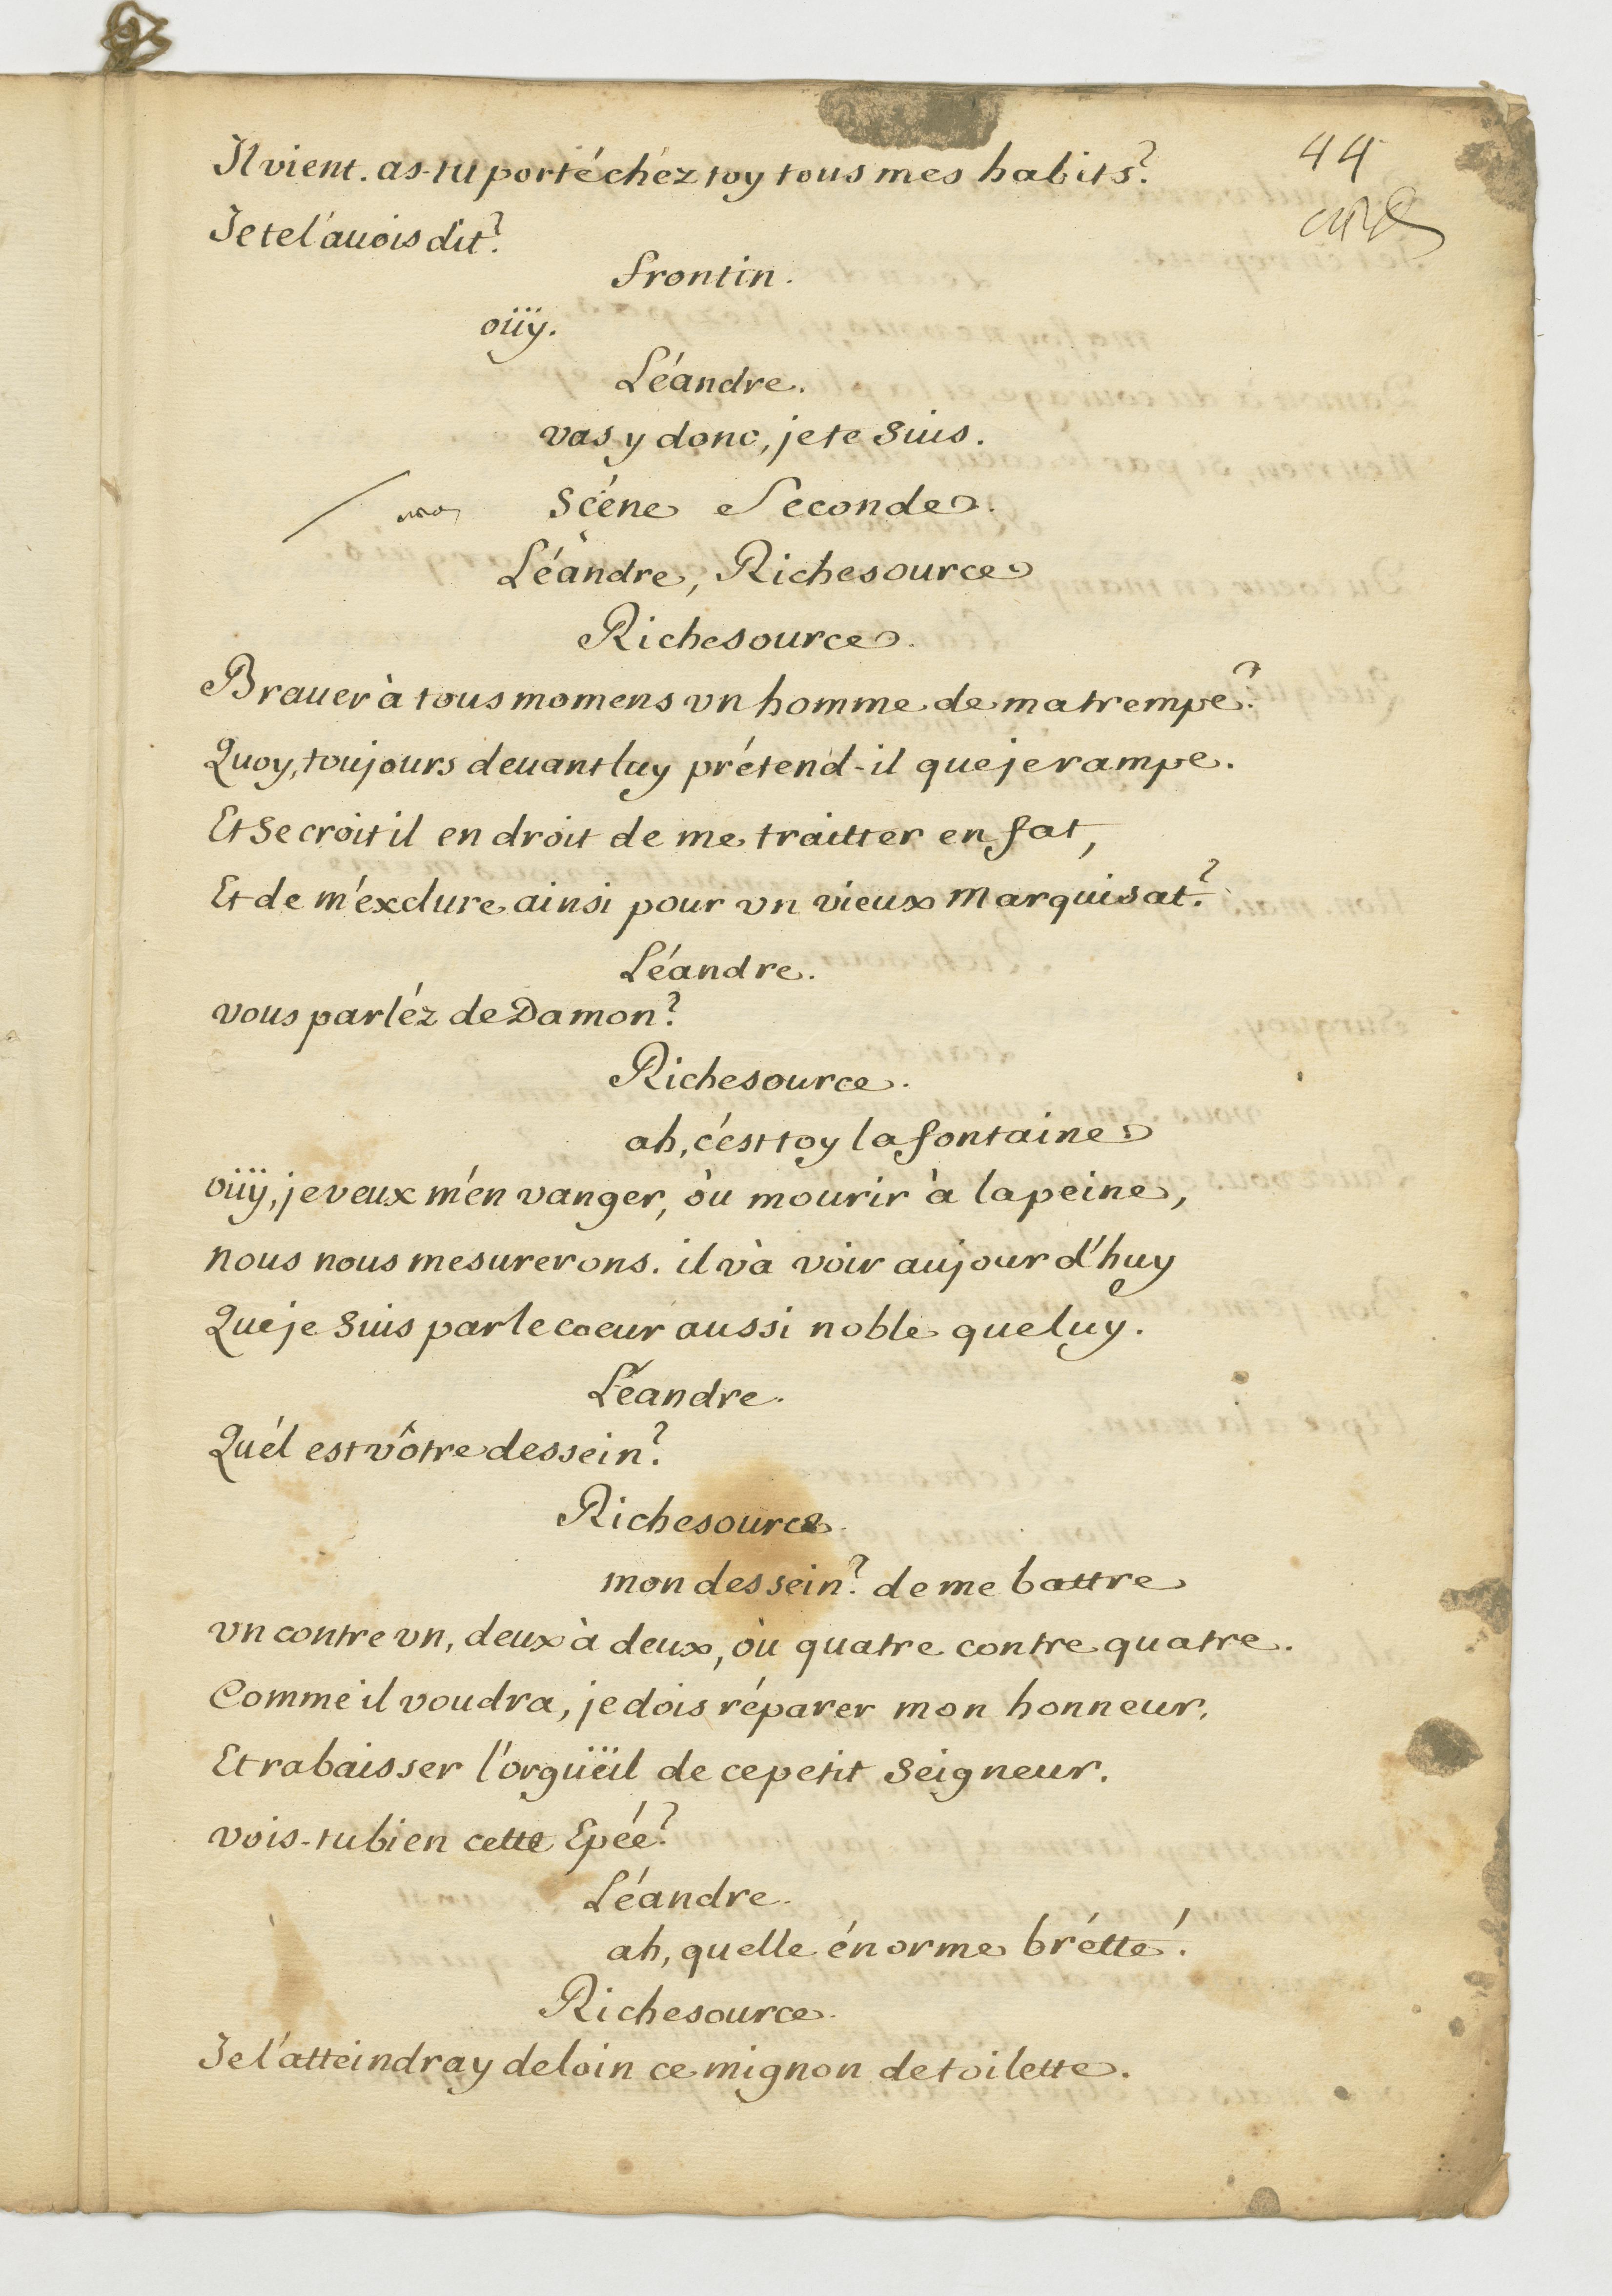 44
Il vient. as-tu porté chéz toy tous mes habits?
Je te l'auois dit?
frontin.
oüy.
Léandre.
vas y donc, je te suis.
Scéne Seconde.
Léandre, Richesource
Richesource.
Brauer à tous momens vn homme de ma trempe?
Quoy, toujours deuant luy prétend-il que je rampe.
Et se croit il en droit de me traitter en fat,
Et de m'exclure ainsi pour vn vieux Marquisat?
Léandre.
vous parléz de Damon?
Richesource.
ah, c'est toy la fontaine
oüy, je veux m'en vanger, òu mourir à la peine,
nous nous mesurerons. il và voir aujourd'huy
Que je suis par le coeur aussi noble que luy.
Léandre.
Quél est vôtre dessein?
Richesource.
mon dessein? de me battre
vn contre vn, deux à deux, òu quatre contre quatre.
Comme il voudra, je dois réparer mon honneur,
Et rabaisser l'orgüeil de ce petit Seigneur.
vois-tu bien cette Epée?
Léandre.
ah, quelle énorme brétte!
Richesource.
Je l'atteindray de loin ce mignon de toilette.